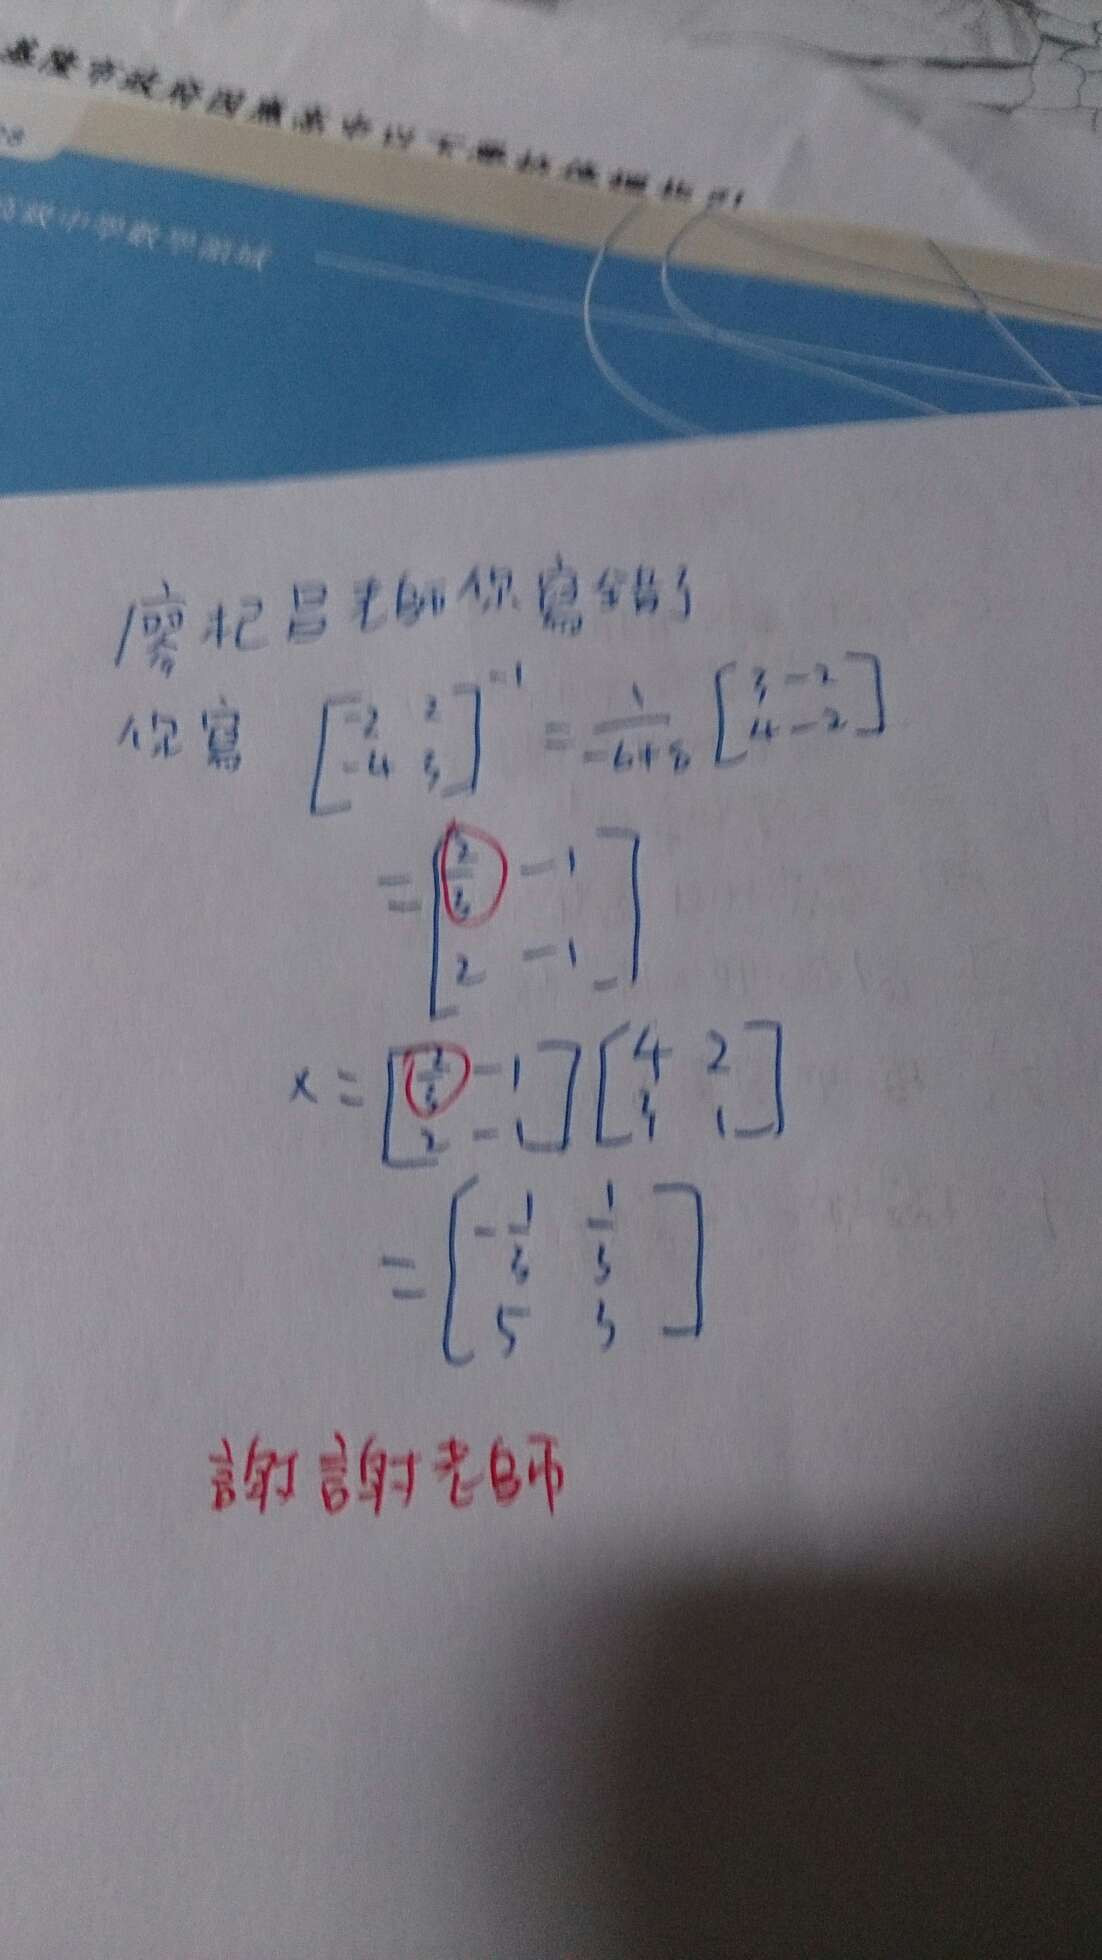 廖杞昌老師你寫錯了
你寫 [-2 2 -4 3]^-1 = 1/(-6+8) [3 -2 4 -2]
= [2/3 -1 2 -1]
x = [2/3 -1 2 -1] [4 2 3 1]
= [-1/3 1/3 5 3]
謝謝老師